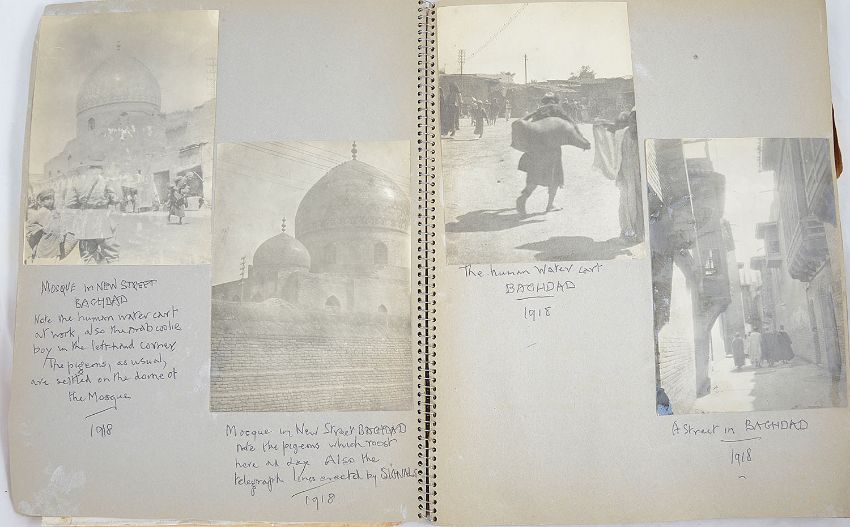 MOSQUE in NEW STREET
BAGHDAD
Note the human water cart
at work, also the Arab coolie
boy in the left hand corner
The pigeons, as usual,
are settled on the dome of
the Mosque
1918
Mosque in New Street BAGHDAD
note the pigeons which roost
here all day. Also the
telegraph lines erected by SIGNALS
1918
The human water cart
BAGHDAD
1918
A Street in BAGHDAD
1918